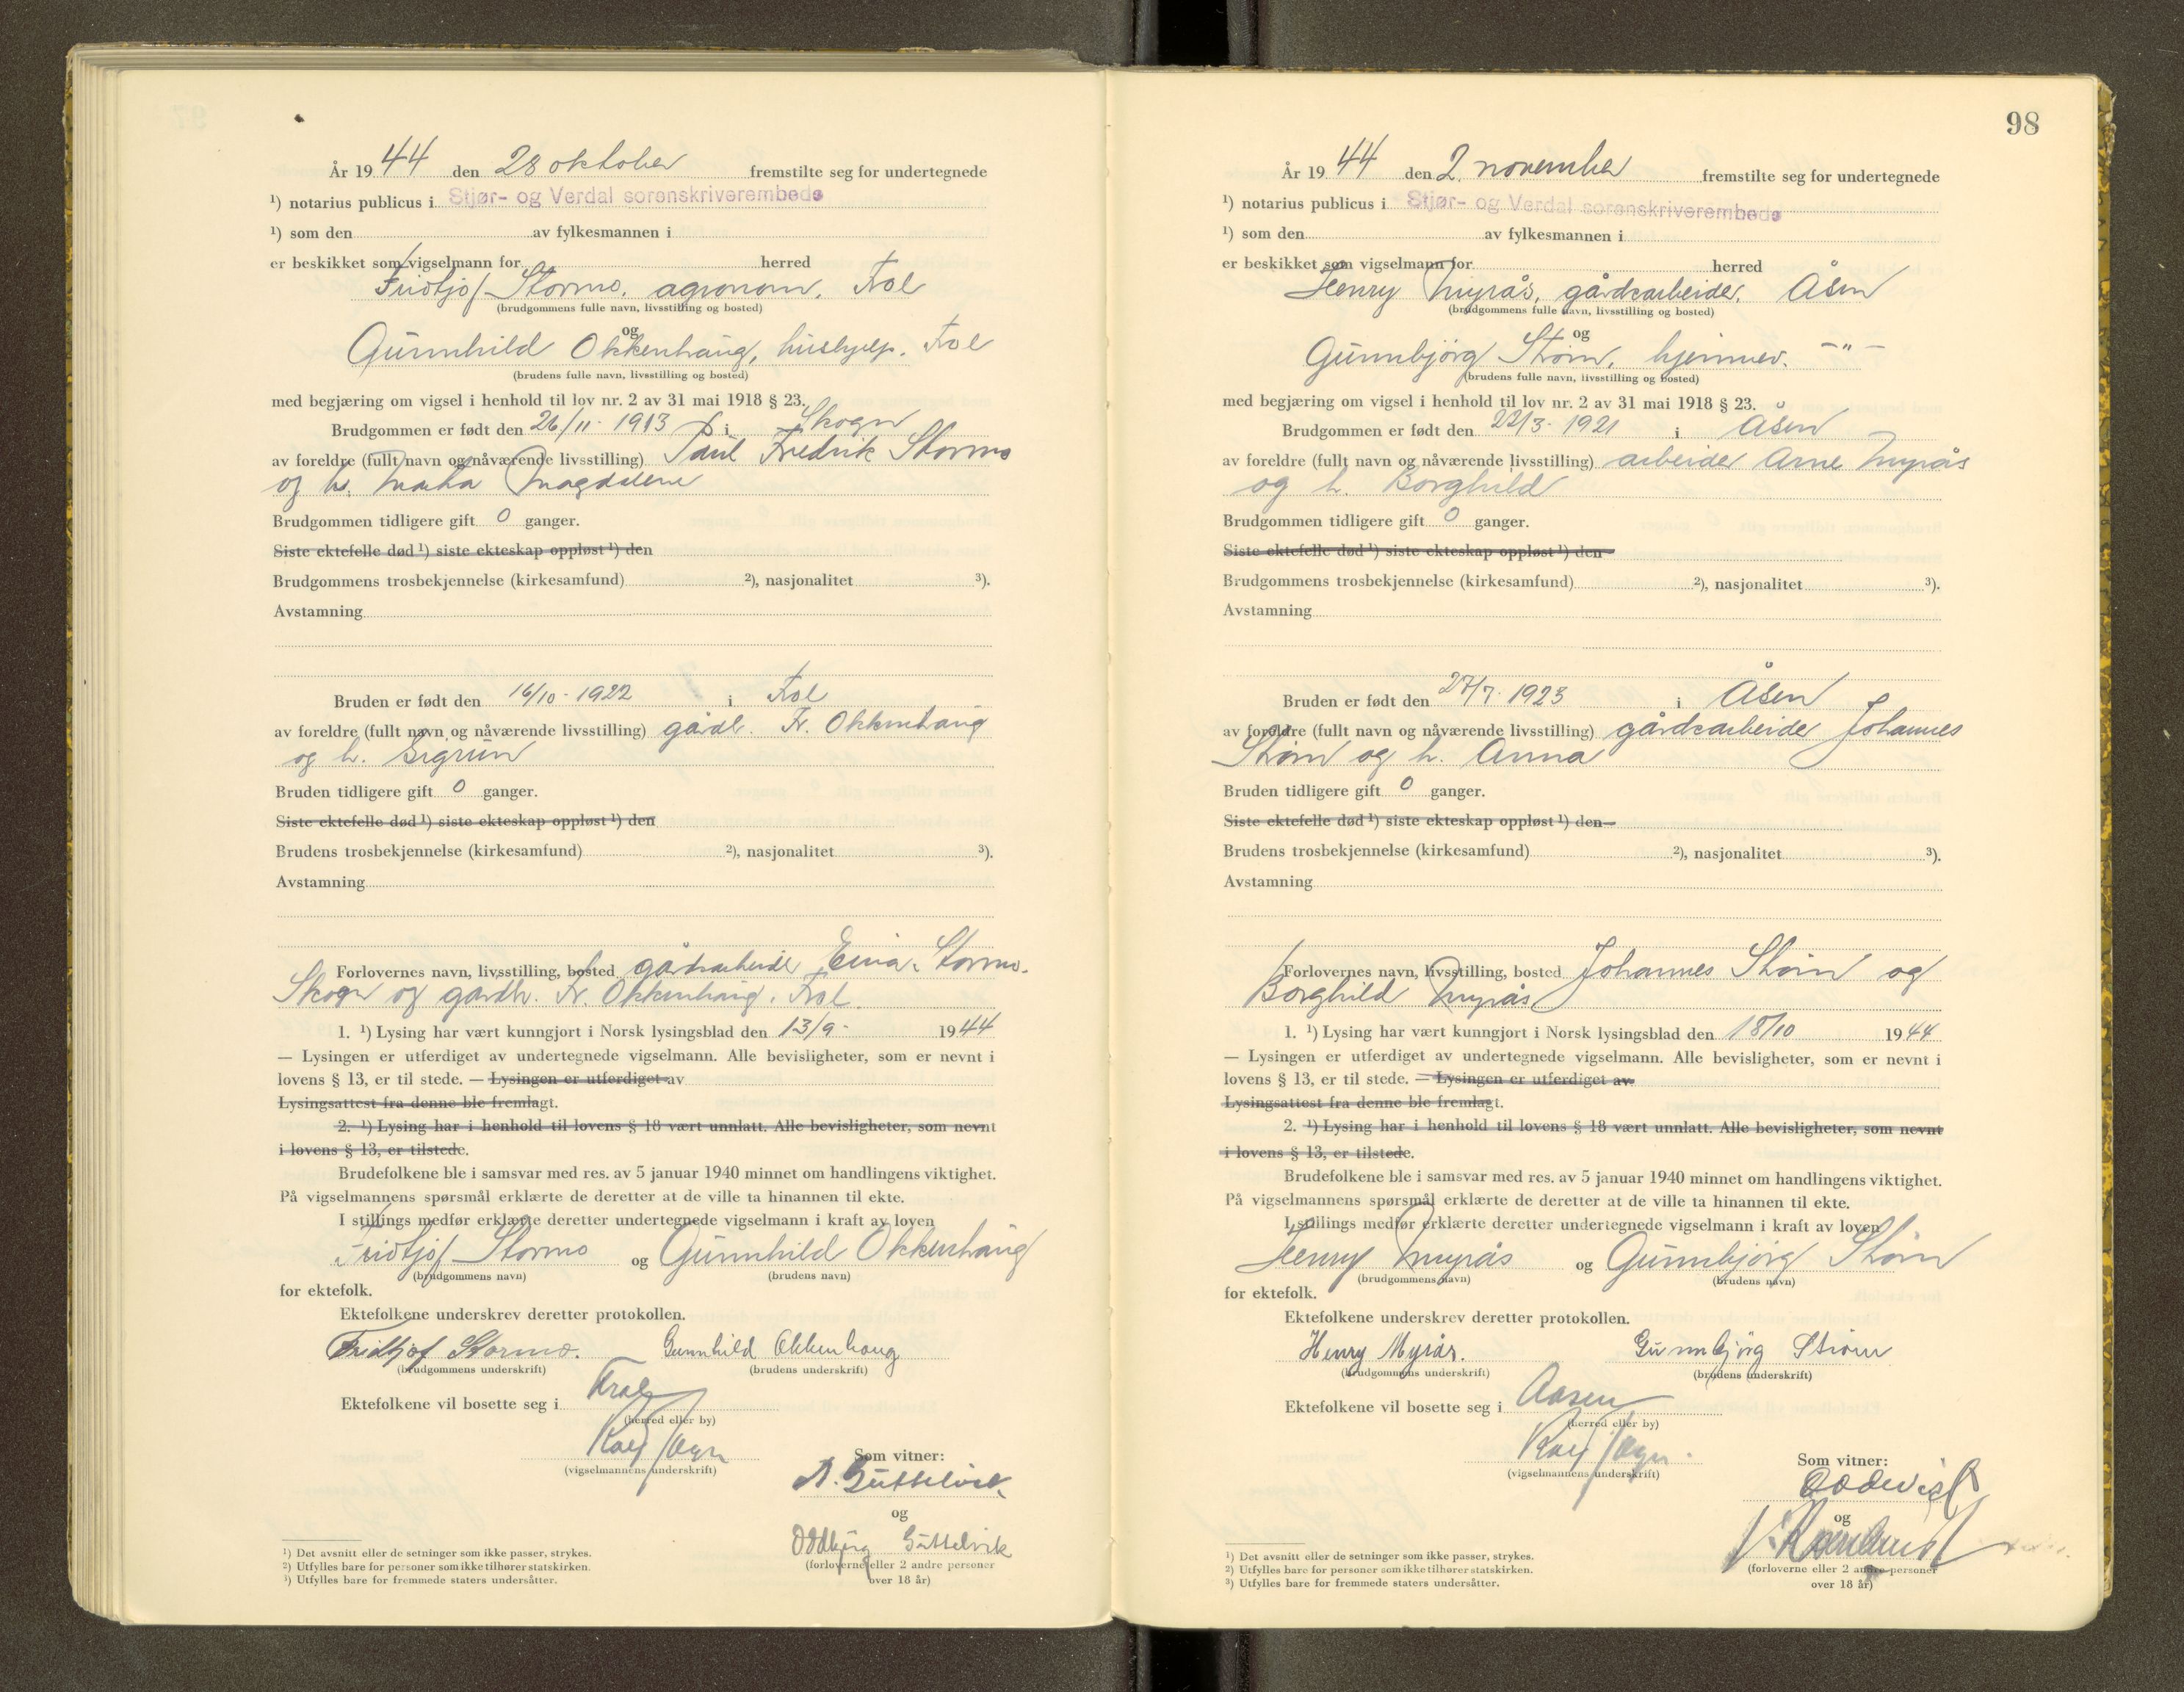 År 1944 den 28 oktober fremstilte seg for undertegnede
¹) notarius publicus i Stjør- og Verdal sorenskriverembede
¹) som den av fylkesmannen i
er beskikket som vigselmann for herred
Fridtjof Stormo, agronom, Frol
(brudgommens fulle navn, livsstilling og bosted)
og
Gunnhild Okkenhaug, hushjelp. Frol
(brudens fulle navn, livsstilling og bosted)
med begjæring om vigsel i henhold til lov nr. 2 av 31 mai 1918 § 23.
Brudgommen er født den 26/11- 1913 i Skogn
av foreldre (fullt navn og nåværende livsstilling) Paul Fredrik Stormo
og h. Magdalene
Brudgommen tidligere gift 0 ganger.
Siste ektefelle død ¹) siste ekteskap oppløst ¹) den
Brudgommens trosbekjennelse (kirkesamfund) ²), nasjonalitet ³).
Avstamning
Bruden er født den 16/10- 1922 i Frol
av foreldre (fullt navn og nåværende livsstilling) gårdbr. Fr. Okkenhaug
og h. Sigrun
Bruden tidligere gift 0 ganger.
Siste ektefelle død ¹) siste ekteskap oppløst ¹) den
Brudens trosbekjennelse (kirkesamfund) ²), nasjonalitet ³).
Avstamning
Forlovernes navn, livsstilling, bosted gårdsarbeider Einar Stormo.
Skogn og gardbr. Fr. Okkenhaug, Frol.
1. ¹) Lysing har vært kunngjort i Norsk lysingsblad den 13/9- 1944
— Lysingen er utferdiget av undertegnede vigselmann. Alle bevisligheter, som er nevnt i
lovens § 13, er til stede. — Lysingen er utferdiget av
Lysingsattest fra denne ble fremlagt.
2. ¹) Lysing har i henhold til lovens § 18 vært unnlatt. Alle bevisligheter, som nevnt
i lovens § 13, er tilstede.
Brudefolkene ble i samsvar med res. av 5 januar 1940 minnet om handlingens viktighet.
På vigselmannens spørsmål erklærte de deretter at de ville ta hinannen til ekte.
I stillings medfør erklærte deretter undertegnede vigselmann i kraft av loven
Fridtjof Stormo og Gunnhild Okkenhaug
(brudgommens navn) (brudens navn)
for ektefolk.
Ektefolkene underskrev deretter protokollen.
Fridtjof Stormo. Gunnhild Okkenhaug
(brudgommens underskrift) (brudens underskrift)
Ektefolkene vil bosette seg i Frol
(herred eller by)
(vigselmannens underskrift)
Som vitner:
A. Guttelvik
og
Oddbjørg Guttelvik
(forloverne eller 2 andre personer
over 18 år)
¹) Det avsnitt eller de setninger som ikke passer, strykes.
²) Utfylles bare for personer som ikke tilhører statskirken.
³) Utfylles bare for fremmede staters undersåtter.
98
År 1944 den 2. november fremstilte seg for undertegnede
¹) notarius publicus i Stjør- og Verdal sorenskriverembede
¹) som den av fylkesmannen i
er beskikket som vigselmann for herred
Henry Myrås, gårdsarbeider, Åsen
(brudgommens fulle navn, livsstilling og bosted)
og
Gunnbjørg Strøm, hjemmev. -"-
(brudens fulle navn, livsstilling og bosted)
med begjæring om vigsel i henhold til lov nr. 2 av 31 mai 1918 § 23.
Brudgommen er født den 22/3- 1921 i Åsen
av foreldre (fullt navn og nåværende livsstilling) arbeider Arne Myrås
og h. Borghild
Brudgommen tidligere gift 0 ganger.
Siste ektefelle død ¹) siste ekteskap oppløst ¹) den
Brudgommens trosbekjennelse (kirkesamfund) ²), nasjonalitet ³).
Avstamning
Bruden er født den 27/7- 1923 i Åsen
av foreldre (fullt navn og nåværende livsstilling) gårdsarbeider Johannes
Strøm og h. Anna
Bruden tidligere gift 0 ganger.
Siste ektefelle død ¹) siste ekteskap oppløst ¹) den
Brudens trosbekjennelse (kirkesamfund) ²), nasjonalitet ³).
Avstamning
Forlovernes navn, livsstilling, bosted Johannes Strøm og
Borghild Myrås
1. ¹) Lysing har vært kunngjort i Norsk lysingsblad den 18/10 1944
— Lysingen er utferdiget av undertegnede vigselmann. Alle bevisligheter, som er nevnt i
lovens § 13, er til stede. — Lysingen er utferdiget av
Lysingsattest fra denne ble fremlagt.
2. ¹) Lysing har i henhold til lovens § 18 vært unnlatt. Alle bevisligheter, som nevnt
i lovens § 13, er tilstede.
Brudefolkene ble i samsvar med res. av 5 januar 1940 minnet om handlingens viktighet.
På vigselmannens spørsmål erklærte de deretter at de ville ta hinannen til ekte.
I stillings medfør erklærte deretter undertegnede vigselmann i kraft av loven
Henry Myrås og Gunnbjørg Strøm
(brudgommens navn) (brudens navn)
for ektefolk.
Ektefolkene underskrev deretter protokollen.
Henry Myrås. Gunnbjørg Strøm
(brudgommens underskrift) (brudens underskrift)
Ektefolkene vil bosette seg i Aasen
(herred eller by)
(vigselmannens underskrift)
Som vitner:
og
(forloverne eller 2 andre personer
over 18 år)
¹) Det avsnitt eller de setninger som ikke passer, strykes.
²) Utfylles bare for personer som ikke tilhører statskirken.
³) Utfylles bare for fremmede staters undersåtter.